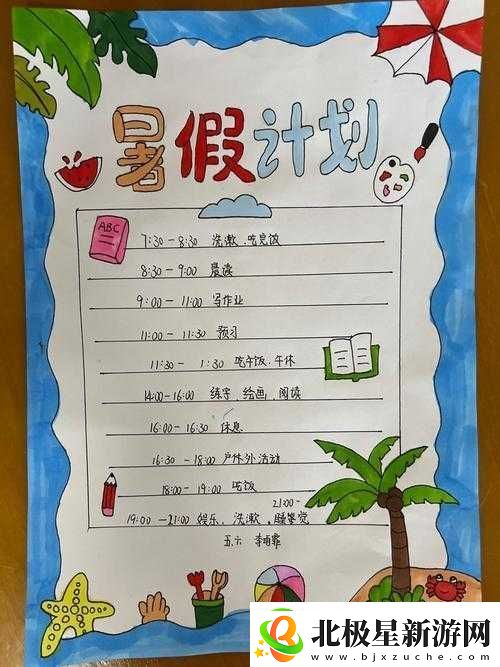 暑假计划
ABC
7:30-8:30 洗漱、吃早饭
8:30-9:00 晨读
9:00-11:00 写作业
11:00-11:30 预习
11:30-1:30 吃午饭、午休
14:00-16:00 练字、绘画、阅读
16:00-16:30 休息
16:30-18:00 户外活动
18:00-19:00 吃饭
19:00-21:00 娱乐、洗漱、21:00-睡觉
五.六
北极星新游网
www.bjxzuche.com